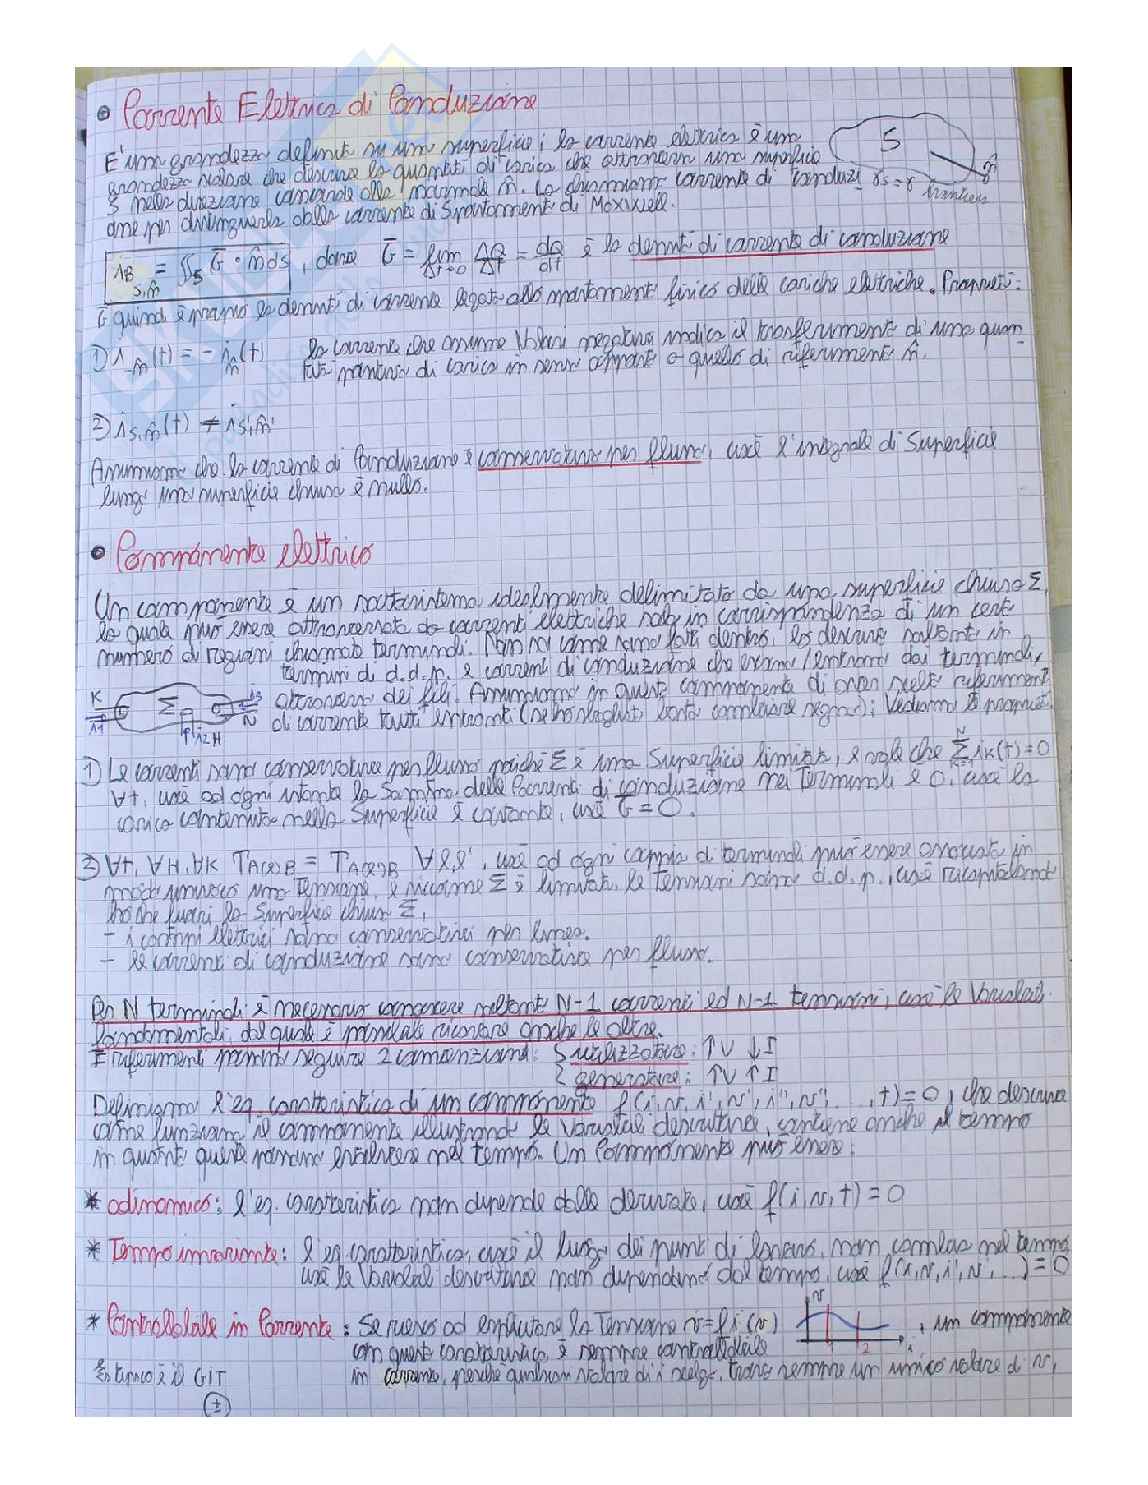 • Corrente Elettrica di Conduzione
E' una grandezza definita su una superficie; la corrente elettrica è una
grandezza scalare che descrive la quantità di carica che attraversa una superficie
S nella direzione concorde alla normale n̂. La chiamiamo corrente di conduzi
one per distinguerla dalla corrente di Spostamento di Maxwell.
S
γs = γ frontiera
n̂
i S,n̂ = ∬S G̅ • n̂ ds , dove G̅ = lim Δt→0 ΔQ/Δt = dQ/dt è la densità di corrente di conduzione
G quindi è proprio la densità di corrente legata allo spostamento fisico delle cariche elettriche. Proprietà:
1) i-n̂(t) = - i n̂(t) la corrente che assume Valori negativi indica il trasferimento di una quan
tità positiva di carica in senso opposto a quello di riferimento n̂.
2) i S,n̂(t) ≠ i S,n̂'
Assumiamo che la corrente di Conduzione è conservativa per flusso, cioè l'integrale di Superficie
lungo una superficie chiusa è nullo.
• Componente elettrico
Un componente è un sottosistema idealmente delimitato da una superficie chiusa Σ,
la quale può essere attraversata da correnti elettriche solo in corrispondenza di un certo
numero di regioni chiamate terminali. Non so come sono fatti dentro, lo descrivo soltanto in
termini di d.d.p. e correnti di conduzione che escono/entrano dai terminali,
attraverso dei fili. Assumiamo in questo componente di aver scelto riferimenti
di corrente tutti entranti (se ho sbagliato basta cambiare segno); Vediamo le proprietà:
K Σ i1 i2 H i3 N
1) Le correnti sono conservative per flusso poiché Σ è una Superficie limitata, e vale che Σ iK(t) = 0
∀t, cioè ad ogni istante la Somma delle Correnti di conduzione nei Terminali è 0, cioè la
carica contenuta nella Superficie è costante, cioè G̅ = 0.
2) ∀t, ∀H, ∀K TA(ℓ)B = TA(ℓ')B ∀ℓ,ℓ', cioè ad ogni coppia di terminali può essere associata in
modo univoco una Tensione, e siccome Σ è limitata le Tensioni sono d.d.p., cioè ricapitolando
ho che fuori la Superficie chiusa Σ,
- i campi elettrici sono conservativi per linea.
- le correnti di conduzione sono conservative per flusso.
Per N terminali è necessario conoscere soltanto N-1 correnti ed N-1 tensioni, cioè le Variabili
fondamentali, dal quale è possibile ricavare anche le altre.
I riferimenti possono seguire 2 convenzioni: { utilizzatore: ↑V ↓I
{ generatore: ↑V ↑I
Definiamo l'eq. caratteristica di un componente f(i, v, i', v', i'', v'', ..., t) = 0, che descrive
come funziona il componente illustrando le Variabili descrittive, contiene anche il tempo
in quanto queste possono evolversi nel tempo. Un Componente può essere:
* adinamico: l'eq. caratteristica non dipende dalle derivate, cioè f(i, v, t) = 0
* Tempo invariante: l'eq caratteristica, cioè il luogo dei punti di lavoro, non cambia nel tempo
cioè le Variabili descrittive non dipendono dal tempo, cioè f(i, v, i', v', ...) = 0
* Controllabile in Corrente: Se riesco ad esplicitare la Tensione v = f i (v) , un componente
con questa caratteristica è sempre controllabile
v 1 2 i
Es tipico è il GIT in corrente, perché qualsiasi valore di i scelgo, trovo sempre un unico valore di v,
±